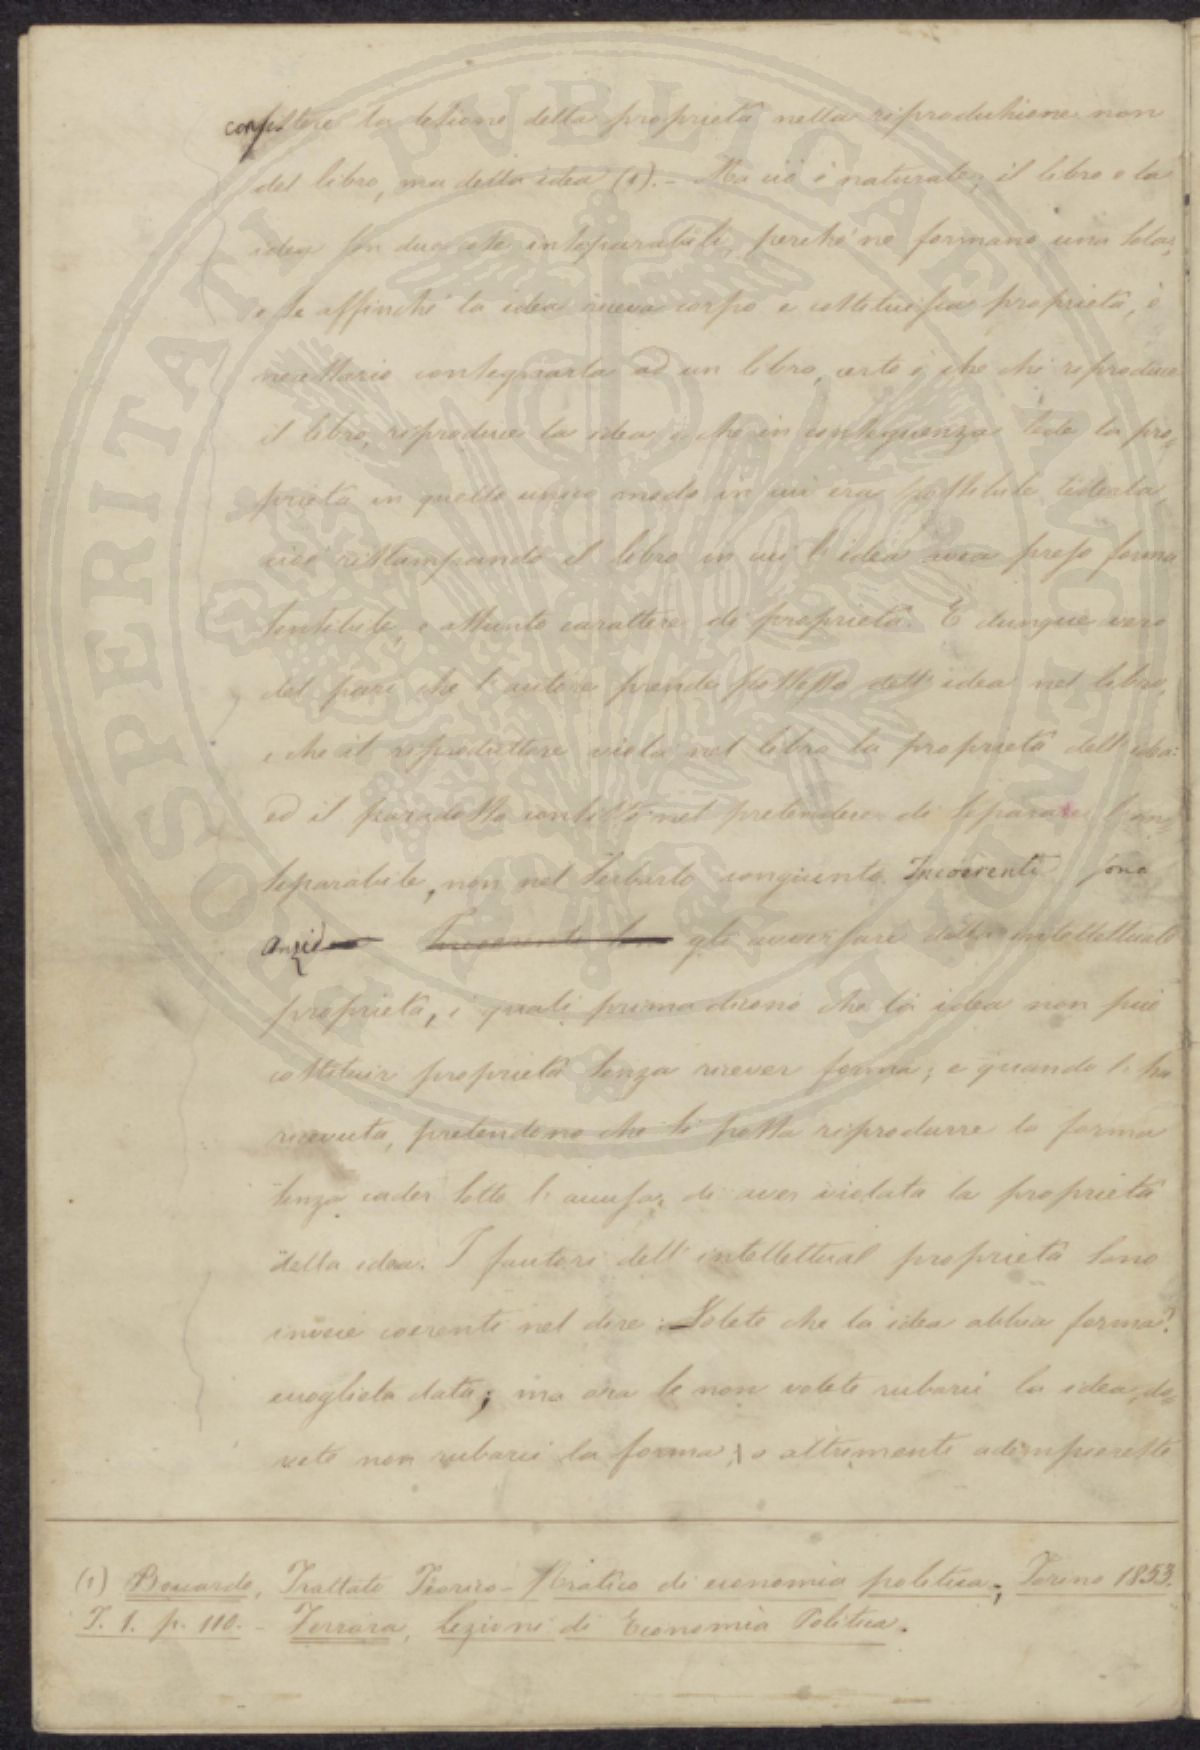 consistere la lesione della proprietà nella riproduzione non
del libro, ma della idea (1). - Ma ciò è naturale; il libro e la
idea son due cose inseparabili, perché ne formano una sola;
e se affinché la idea riceva corpo e costituisca proprietà, è
necessario consegnarla ad un libro, certo è che chi riproduce
il libro, riproduce la idea, e che in conseguenza lede la pro=
prietà in quello unico modo in cui era possibile lederla,
cioè ristampando il libro in cui l'idea avea preso forma
sensibile, e assunto carattere di proprietà. E dunque vero
del pari che l'autore prende possesso dell'idea nel libro,
e che il riproduttore viola nel libro la proprietà dell'idea:
ed il paradosso consiste nel pretendere di separare l'in=
separabile, non nel serbarlo congiunto. Incoerenti sono
anzi gli avversari della intellettuale
proprietà, i quali prima dicono che la idea non può
costituir proprietà senza ricever forma; e quando l'ha
ricevuta, pretendono che si possa riprodurre la forma
senza cader sotto l'accusa di aver violata la proprietà
della idea. I fautori dell'intellettual proprietà sono
invece coerenti nel dire: Volete che la idea abbia forma?
eccogliela data; ma ora se non volete rubarci la idea, do=
vete non rubarci la forma; o altrimenti adempiereste
(1) Boccardo, Trattato Teorico-Pratico di economia politica; Torino 1853.
T. 1. p. 110. - Ferrara, Lezioni di Economia Politica.
PUBLICAE
PROSPERITATI